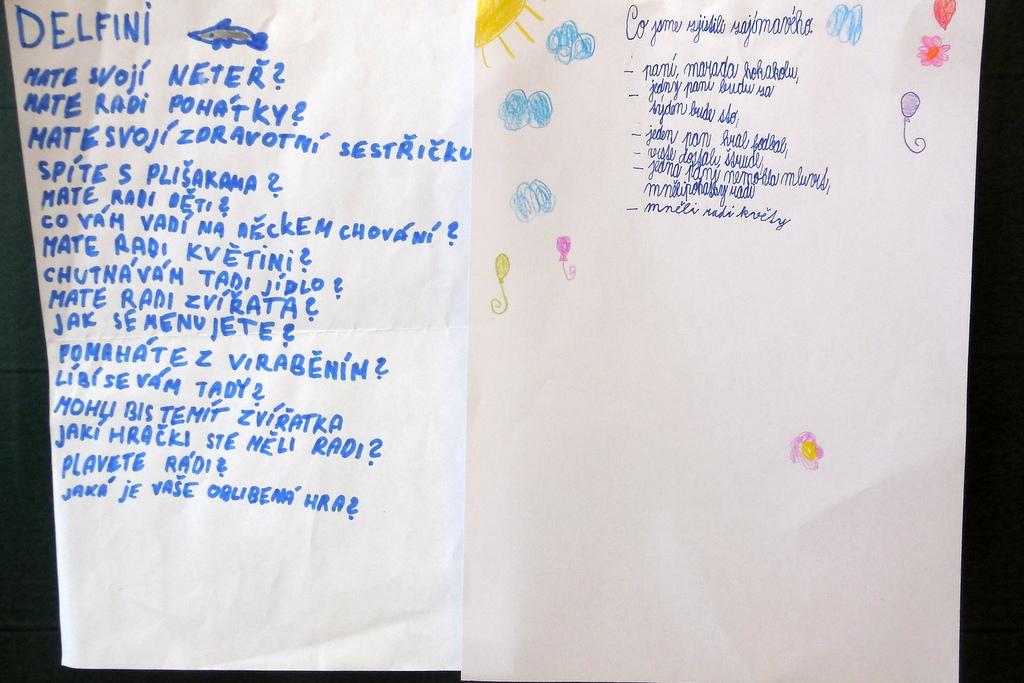 DELFINI
MATE SVOJÍ NETEŘ?
MATE RADI POHÁTKY?
MATE SVOJÍ ZDRAVOTNÍ SESTŘIČKU
SPÍTE S PLIŠAKAMA?
MATE RADI DĚTI?
CO VÁM VADÍ NA DĚCKEM CHOVÁNÍ?
MATE RADI KVĚTINI?
CHUTNÁ VÁM TADI JÍDLO?
MATE RADI ZVÍŘATA?
JAK SE MENUJETE?
POMAHÁTE Z VIRABĚNÍM?
LÍBÍ SE VÁM TADY?
MOHLI BIS TE MÍT ZVÍŘATKA
JAKÍ HRAČKI STE MĚLI RADI?
PLAVETE RÁDI?
JAKÁ JE VAŠE OBLIBENÁ HRA?
Co jsme zjistili zajímavého.
– paní, marada kokakolu,
– jedný paní budu za
týden bude sto,
– jeden pan hral fodbal,
– jedna paný nemohla mluvit,
mněli pohatky rádi
– mněli radi květy